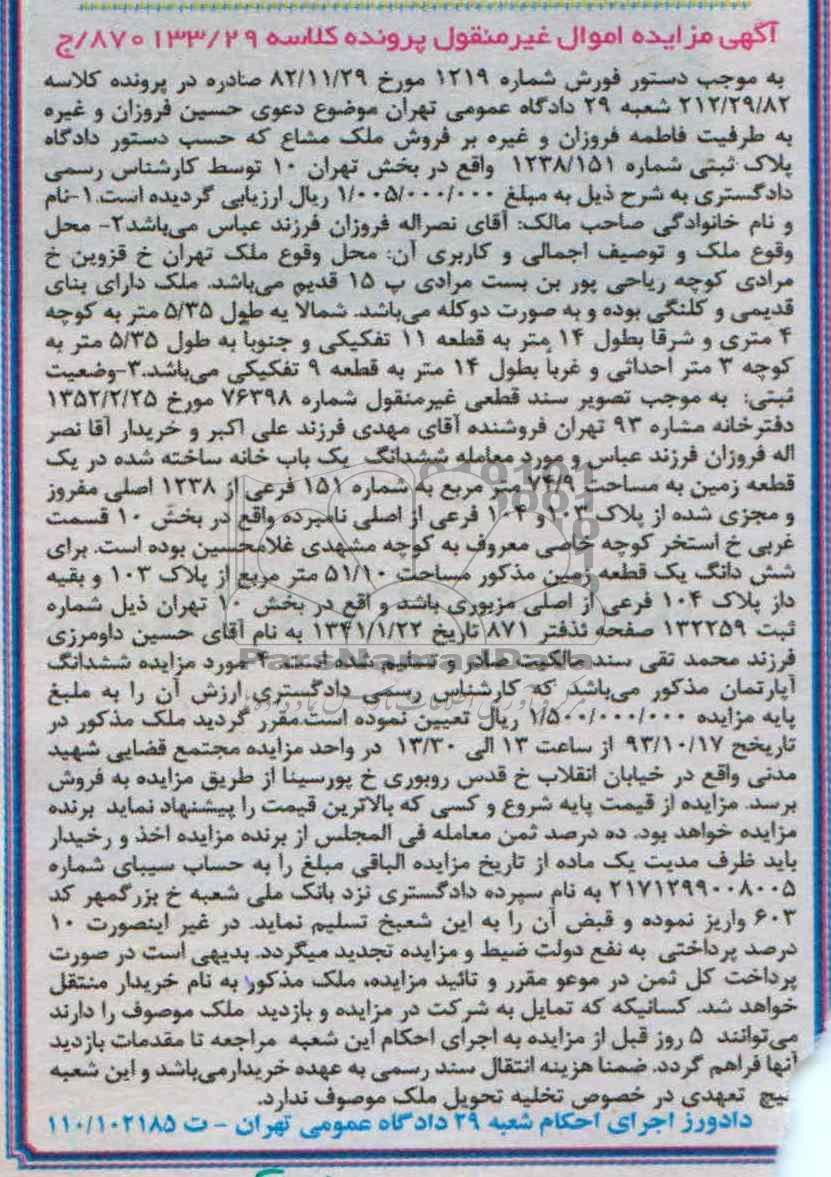 آگهی مزایده اموال غیرمنقول پرونده کلاسه ۸۷۰۱۳۳/۲۹/ج
به موجب دستور فورش شماره ۱۲۱۹ مورخ ۸۲/۱۱/۲۹ صادره در پرونده کلاسه
۲۱۲/۲۹/۸۲ شعبه ۲۹ دادگاه عمومی تهران موضوع دعوی حسین فروزان و غیره
به طرفیت فاطمه فروزان و غیره بر فروش ملک مشاع که حسب دستور دادگاه
پلاک ثبتی شماره ۱۲۳۸/۱۵۱ واقع در بخش تهران ۱۰ توسط کارشناس رسمی
دادگستری به شرح ذیل به مبلغ ۱/۰۰۵/۰۰۰/۰۰۰ ریال ارزیابی گردیده است.۱-نام
و نام خانوادگی صاحب مالک: آقای نصراله فروزان فرزند عباس می‌باشد۲- محل
وقوع ملک و توصیف اجمالی و کاربری آن: محل وقوع ملک تهران خ قزوین خ
مرادی کوچه ریاحی پور بن بست مرادی پ ۱۵ قدیم می‌باشد. ملک دارای بنای
قدیمی و کلنگی بوده و به صورت دوکله می‌باشد. شمالا به طول ۵/۳۵ متر به کوچه
۴ متری و شرقا بطول ۱۴ متر به قطعه ۱۱ تفکیکی و جنوبا به طول ۵/۳۵ متر به
کوچه ۳ متر احداثی و غرباً بطول ۱۴ متر به قطعه ۹ تفکیکی می‌باشد.۳-وضعیت
ثبتی: به موجب تصویر سند قطعی غیرمنقول شماره ۷۶۳۹۸ مورخ ۱۳۵۲/۲/۲۵
دفترخانه مشاره ۹۳ تهران فروشنده آقای مهدی فرزند علی اکبر و خریدار آقا نصر
اله فروزان فرزند عباس و مورد معامله ششدانگ یک باب خانه ساخته شده در یک
قطعه زمین به مساحت ۷۴/۹ متر مربع به شماره ۱۵۱ فرعی از ۱۲۳۸ اصلی مفروز
و مجزی شده از پلاک ۱۰۳ و ۱۰۴ فرعی از اصلی نامبرده واقع در بخش ۱۰ قسمت
غربی خ استخر کوچه خاصی معروف به کوچه مشهدی غلامحسین بوده است. برای
شش دانگ یک قطعه زمین مذکور مساحت ۵۱/۱۰ متر مربع از پلاک ۱۰۳ و بقیه
داز پلاک ۱۰۴ فرعی از اصلی مزبوری باشد و اقع در بخش ۱۰ تهران ذیل شماره
ثبت ۱۳۲۲۵۹ صفحه ئذفتر ۸۷۱ تاریخ ۱۳۴۱/۱/۲۲ به نام آقای حسین داومرزی
فرزند محمد تقی سند مالکیت صادر و تسلیم شده است. ۴-مورد مزایده ششدانگ
آپارتمان مذکور می‌باشد که کارشناس رسمی دادگستری ارزش آن را به ملبغ
پایه مزایده ۱/۵۰۰/۰۰۰/۰۰۰ ریال تعیین نموده است.مقرر گردید ملک مذکور در
تاریخح ۹۳/۱۰/۱۷ از ساعت ۱۳ الی ۱۳/۳۰ در واحد مزایده مجتمع قضایی شهید
مدنی واقع در خیابان انقلاب خ قدس روبوری خ پورسینا از طریق مزایده به فروش
برسد. مزایده از قیمت پایه شروع و کسی که بالاترین قیمت را پیشنهاد نماید برنده
مزایده خواهد بود. ده درصد ثمن معامله فی المجلس از برنده مزایده اخذ و رخیدار
باید ظرف مدیت یک ماده از تاریخ مزایده الباقی مبلغ را به حساب سیبای شماره
۲۱۷۱۲۹۹۰۰۸۰۰۵ به نام سپرده دادگستری نزد بانک ملی شعبه خ بزرگمهر کد
۶۰۳ واریز نموده و قبض آن را به این شعبخ تسلیم نماید. در غیر اینصورت ۱۰
درصد پرداختی به نفع دولت ضبط و مزایده تجدید میگردد. بدیهی است در صورت
پرداخت کل ثمن در موعو مقرر و تائید مزایده، ملک مذکور به نام خریدار منتقل
خواهد شد. کسانیکه که تمایل به شرکت در مزایده و بازدید ملک موصوف را دارند
می‌توانند ۵ روز قبل از مزایده به اجرای احکام این شعبه مراجعه تا مقدمات بازدید
آنها فراهم گردد. ضمنا هزینه انتقال سند رسمی به عهده خریدارمی‌باشد و این شعبه
تعهدی در خصوص تخلیه تحویل ملک موصوف ندارد.
دادورز اجرای احکام شعبه ۲۹ دادگاه عمومی تهران - ت ۱۱۰/۱۰۲۱۸۵
ParsNamadData